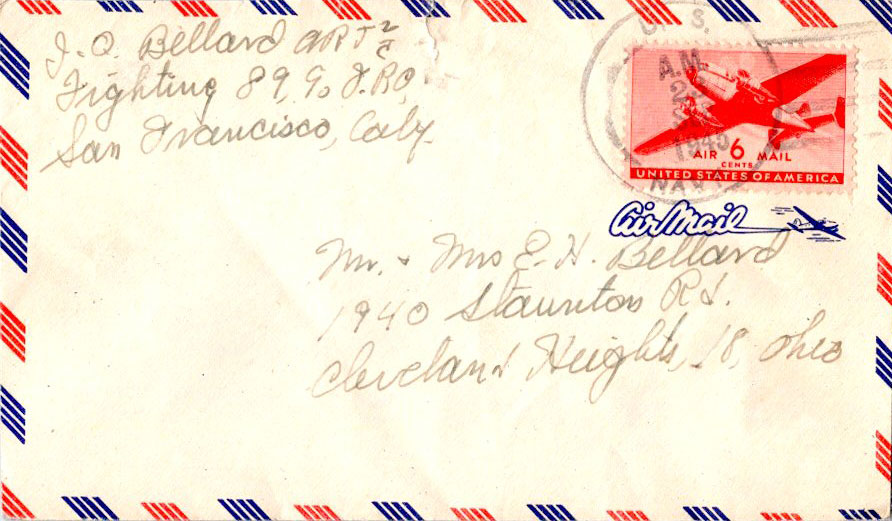 J. Q. Bellard ART 2/c
Fighting 89, % F.P.O,
San Francisco, Caly.
U. S.
A.M.
1945
NAVY
AIR 6 MAIL
CENTS
UNITED STATES OF AMERICA
Air Mail
Mr. + Mrs E. H. Bellard
1940 Staunton Rd.
Cleveland Heights, 18, Ohio